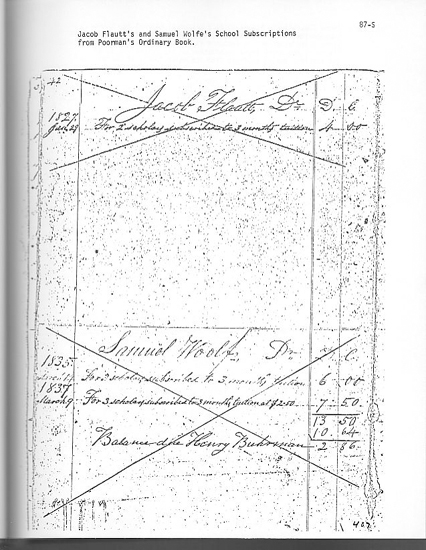 87-S
Jacob Flautt's and Samuel Wolfe's School Subscriptions
from Poorman's Ordinary Book.
Jacob Flautt, Dr. D. C.
1827
Jan. 28 For 2 scholars subscribed to 3 months tuition 4 50
Samuel Woolf, Dr. D. C.
1835
For 3 scholars subscribed to 3 months tution 6 00
1837
March 9 For 3 scholars subscribed to 3 months tution at $2.50 7 50
13 50
10 64
Balance due Henry Buhrman 2 86
407